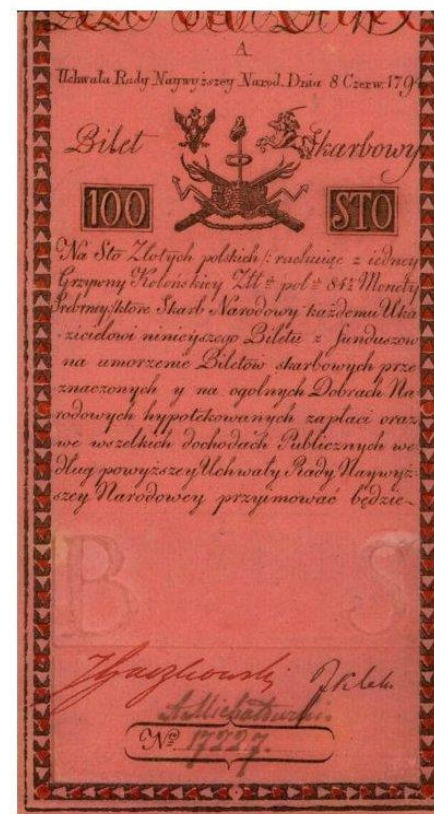 A.
Uchwała Rady Naywyższey Narod. Dnia 8 Czerw. 1794
Bilet Skarbowy
100 STO
Na Sto Złotych polskich /: rachuiąc z iedney
Grzywny Kolońskiey Złł: pol: 84½ Monety
Srebrney/: które Skarb Narodowy każdemu Uka
zicielowi ninieyszego Biletu z funduszow
na umorzenie Biletow skarbowych prze
znaczonych y na ogolnych Dobrach Na
rodowych hypotekowanych zapłaci oraz
we wszelkich dochodach Publicznych we
dług powyższey Uchwały Rady Naywyż
szey Narodowey przyimować będzie
B S
Nº 17227.